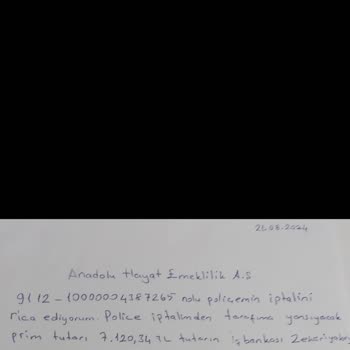 21.08.2024
Anadolu Hayat Emeklilik A.S
9112 - 1000004387265 nolu poliçemin iptalini
rica ediyorum. Poliçe iptalimden tarafıma yansıyacak
prim tutarı 7.120,34 TL tutarın işbankası